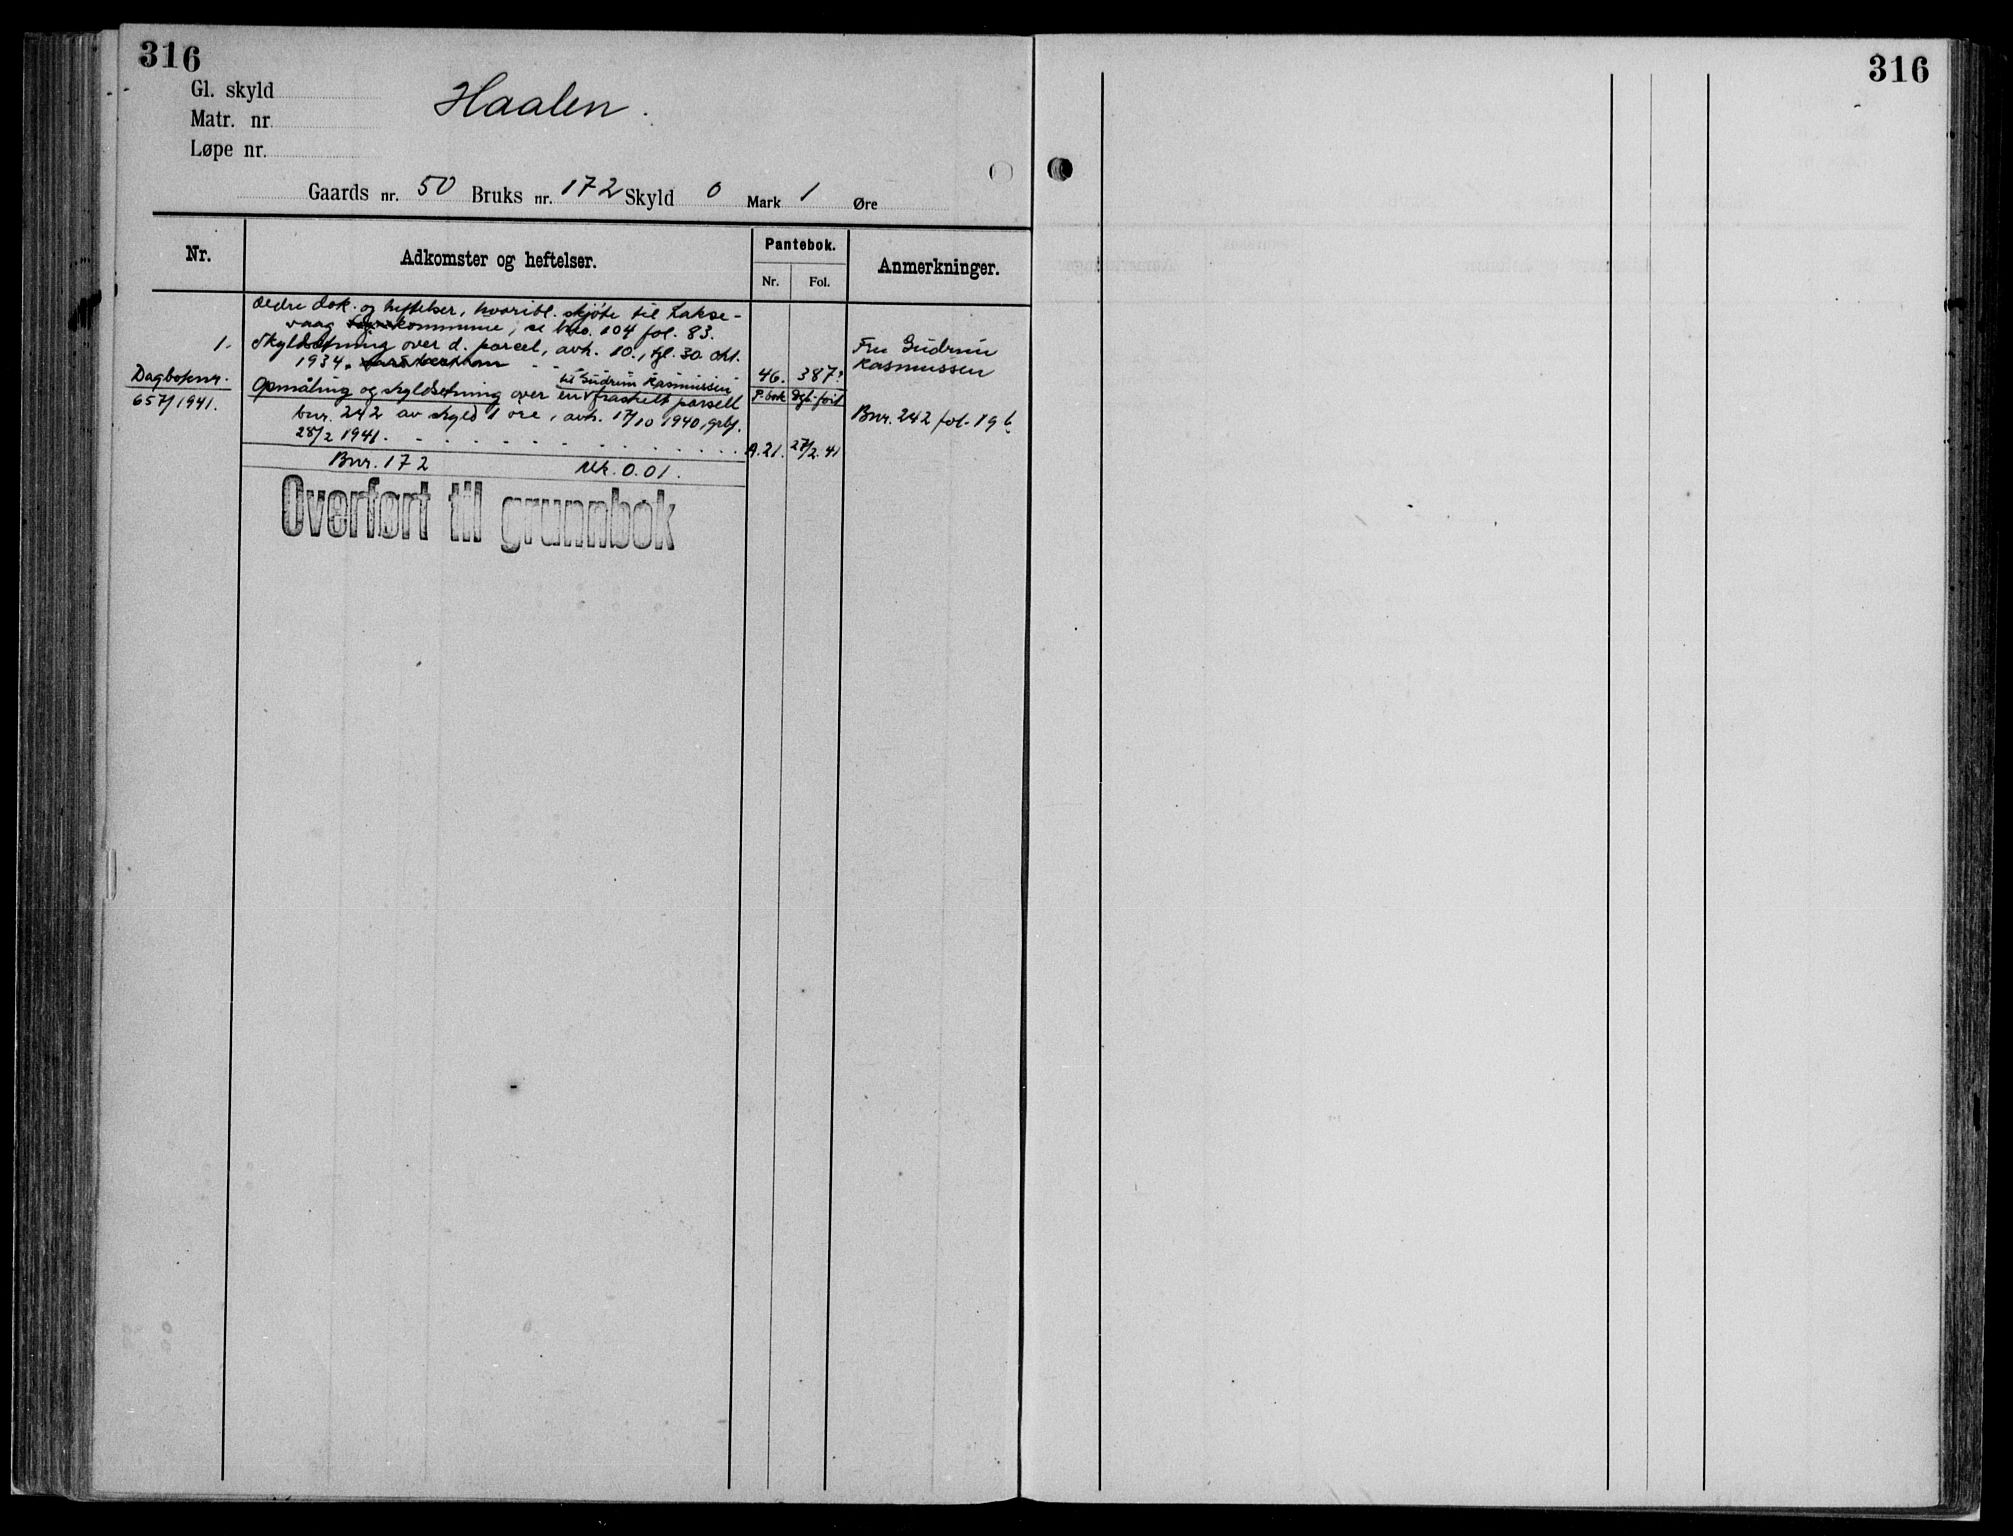 316
316
Gl. skyld
Matr. nr
Løpe nr.
Haalen.
Gaards nr. 50 Bruks nr. 172 Skyld 0 Mark 1 Øre
Nr.
Adkomster og heftelser.
Pantebok.
Nr.
Fol.
Anmerkninger.
Ældre dok. og heftelser, hvoribl. skjøte til Lakse-
vaag kommune, se bno. 104 fol. 83.
1. Skyldsetning over d. parcel, avh. 10., tgl. 30. okt.
1934. 46. 387
Fru Gudrun
Rasmussen
Dagboknr.
657/1941.
til Gudrun Rasmussen
Opmåling og skyldsetning over en fraskilt parsell
P. bok Dgb.-ført
bnr. 242 av skyld 1 øre, avh. 17/10 1940, grbf.
28/2 1941. A.21. 27/2.41
Bnr. 242 fol. 196
Bnr. 172 Mk. 0.01.
Overført til grunnbok